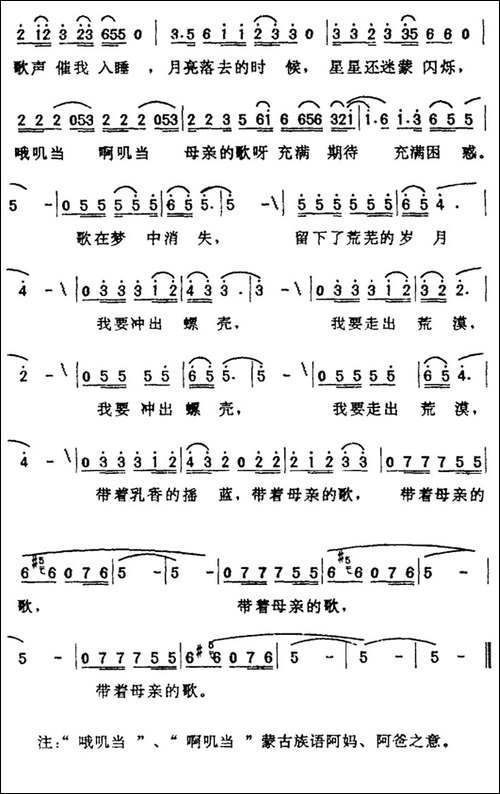 歌声 催我 入睡，月亮落去的时 候，星星还迷蒙 闪烁，
哦叽当 啊叽当 母亲的歌呀 充满 期待 充满困 惑。
歌在梦 中消 失， 留下了荒芜的岁 月
我要冲出 螺 壳， 我要走出 荒 漠，
我要 冲出 螺 壳， 我要走出 荒 漠，
带着乳香的摇 蓝，带着母亲的歌， 带着母亲的
歌， 带着母亲的歌，
带着母亲的歌。
注：“哦叽当 ”、“ 啊叽当 ”蒙古族语阿妈、阿爸之意。